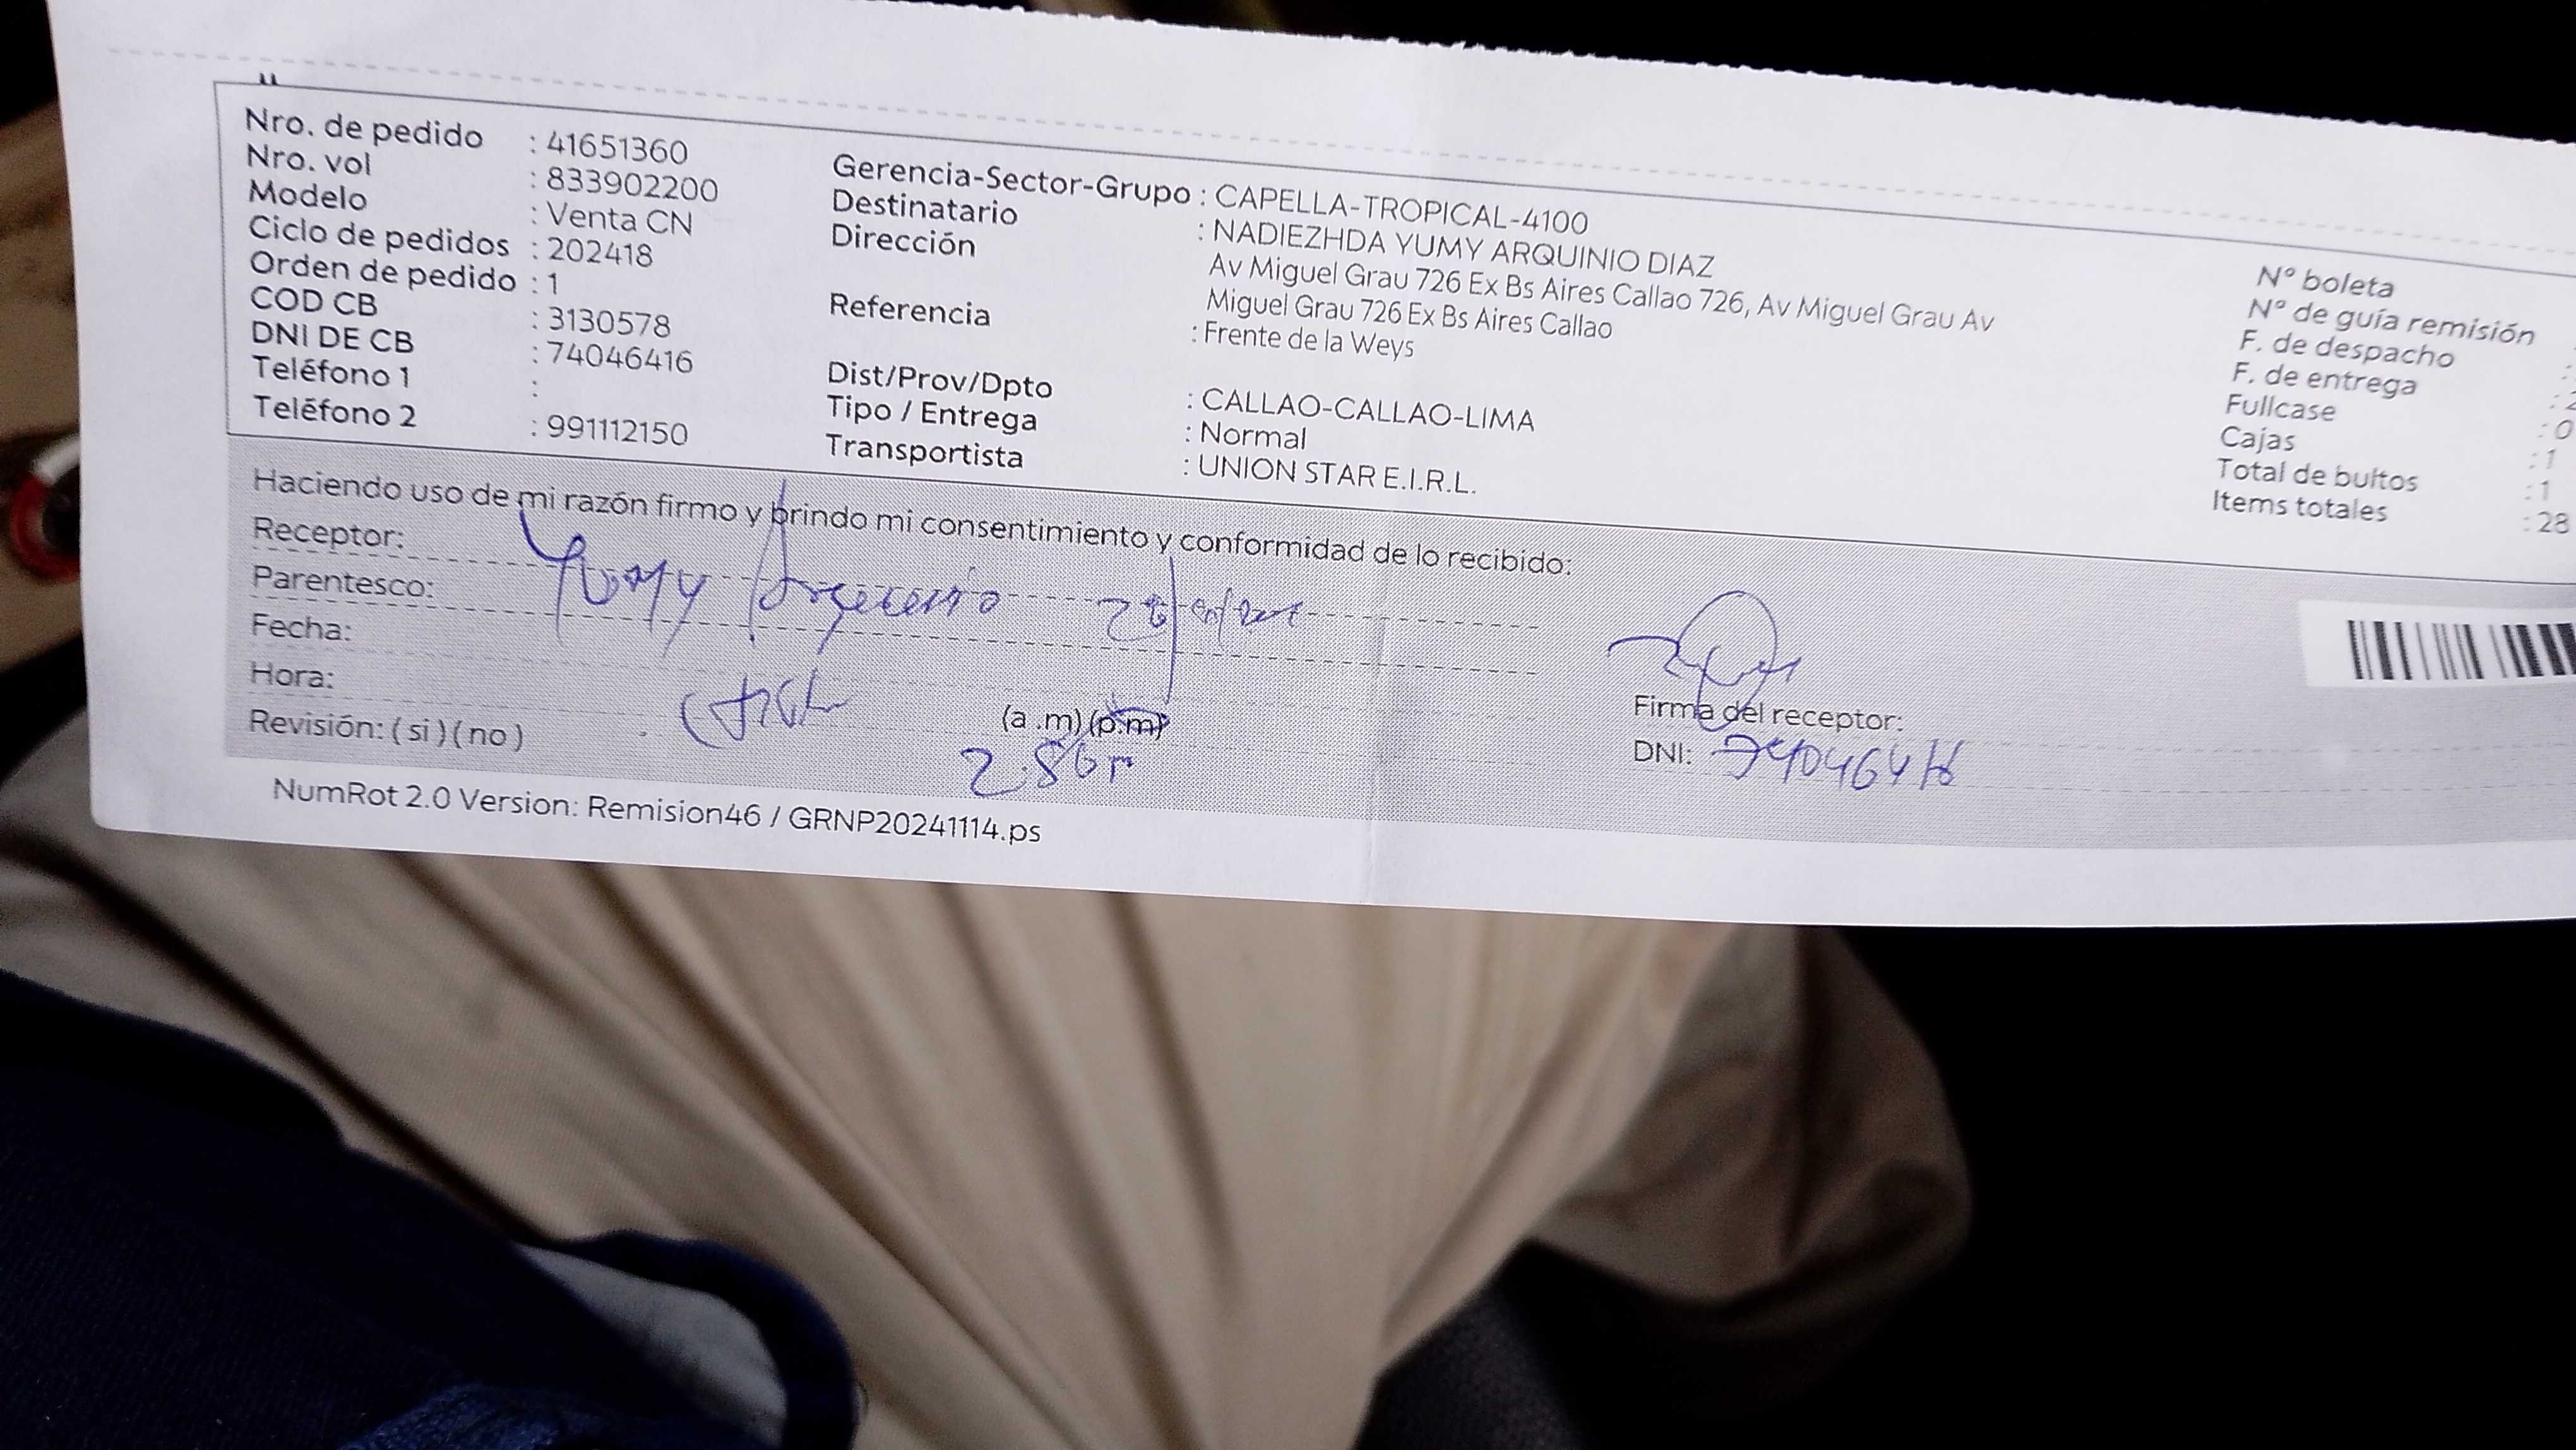 Nro. de pedido : 41651360
Nro. vol : 833902200
Modelo : Venta CN
Ciclo de pedidos : 202418
Orden de pedido : 1
COD CB : 3130578
DNI DE CB : 74046416
Teléfono 1 :
Teléfono 2 : 991112150
Gerencia-Sector-Grupo : CAPELLA-TROPICAL-4100
Destinatario : NADIEZHDA YUMY ARQUINIO DIAZ
Dirección Av Miguel Grau 726 Ex Bs Aires Callao 726, Av Miguel Grau Av
Miguel Grau 726 Ex Bs Aires Callao
Referencia : Frente de la Weys
Dist/Prov/Dpto : CALLAO-CALLAO-LIMA
Tipo / Entrega : Normal
Transportista : UNION STAR E.I.R.L.
Nº boleta
Nº de guía remisión
F. de despacho :
F. de entrega : 2
Fullcase : 0
Cajas : 1
Total de bultos : 1
Items totales : 28
Haciendo uso de mi razón firmo y brindo mi consentimiento y conformidad de lo recibido:
Receptor: Yumy
Parentesco:
Fecha:
Hora: (a .m) (p.m)
Revisión: ( si ) ( no )
Firma del receptor:
DNI: 74046416
NumRot 2.0 Version: Remision46 / GRNP20241114.ps